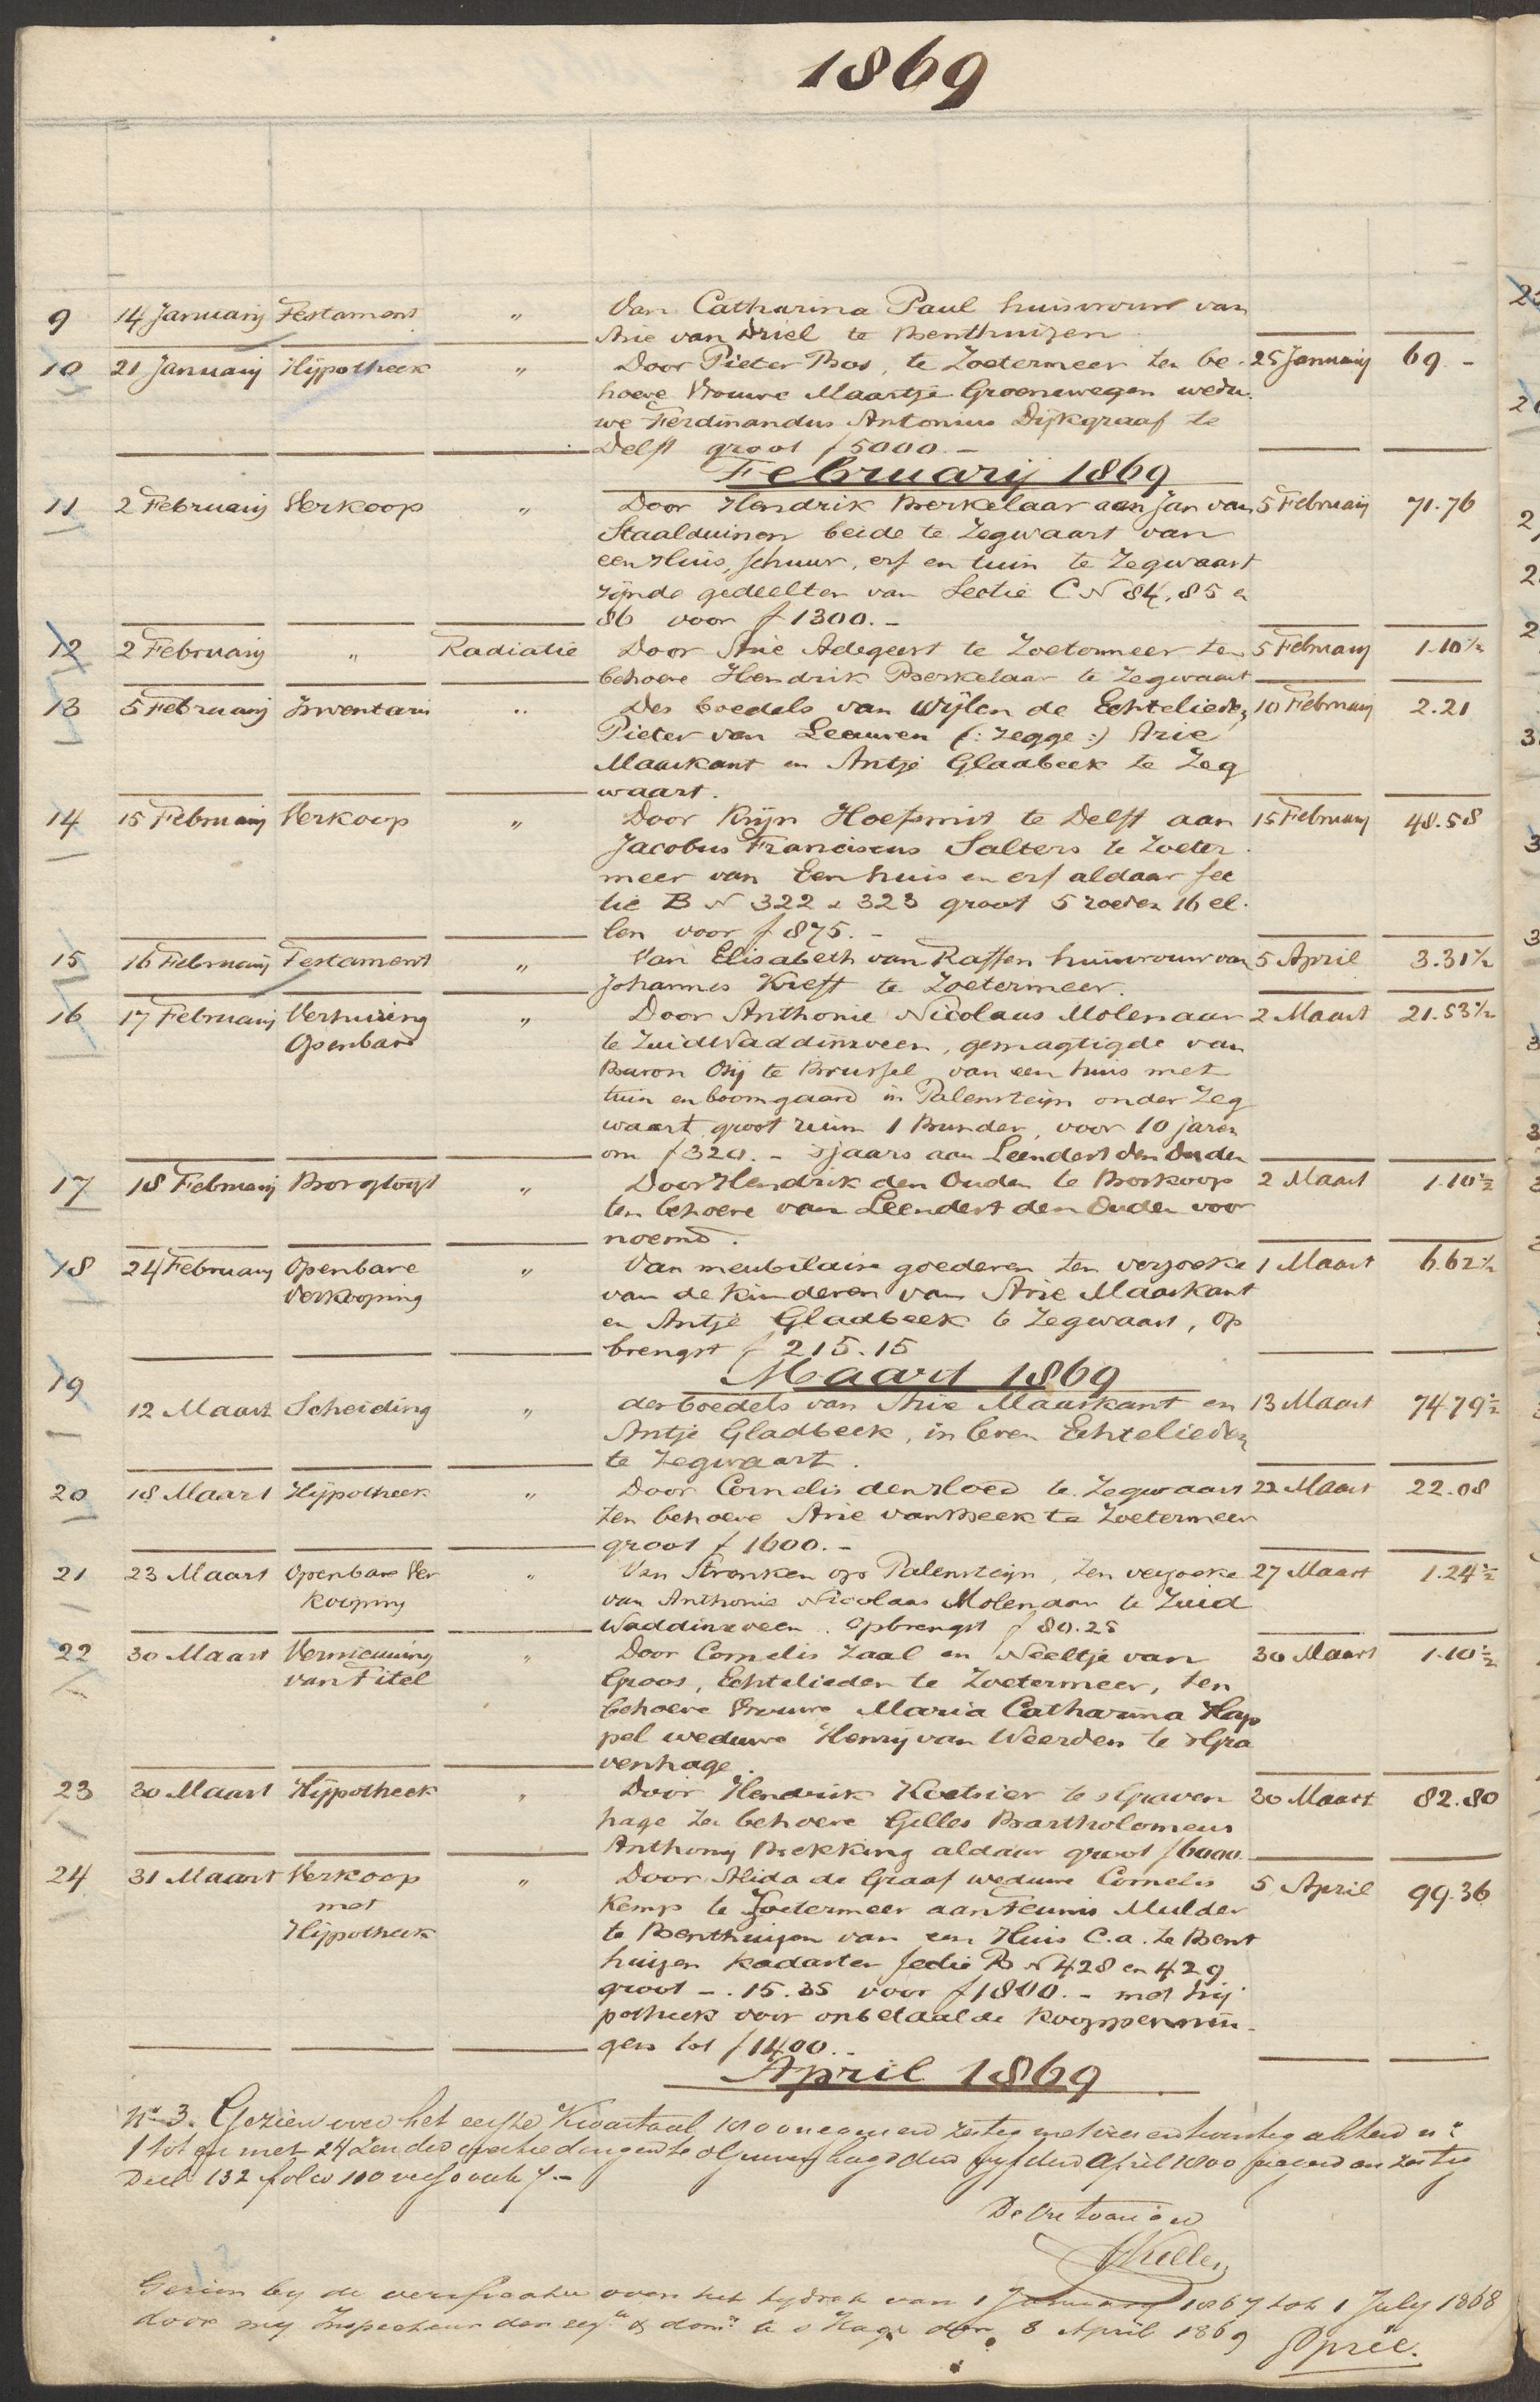 1869
9 14 Januarij Testament " Van Catharina Paul huisvrouw van
Arie van Driel te Benthuizen
10 21 Januarij Hijpotheek " Door Pieter Bos, te Zoetermeer ten be- 25 Januarij 69.-
hoeve Vrouwe Maartje Groenewegen wedu
we Ferdinandus Antonius Dijkgraaf te
Delft groot f 5000.-
Februarij 1869
11 2 Februarij Verkoop " Door Hendrik Berkelaar aan Jan van 5 Februarij 71.76
Staalduinen beide te Zegwaart van
een Huis, schuur, erf en tuin te Zegwaart
zijnde gedeelten van Sectie C N 84, 85 en
86 voor f 1300.-
12 2 Februarij " Radiatie Door Arie Adegeest te Zoetermeer ten 5 Februarij 1.10½
behoeve Hendrik Berkelaar te Zegwaart
13 5 Februarij Inventaris " Des boedels van Wijlen de Echtelieden 10 Februarij 2.21
Pieter van Leeuwen (: zegge :) Arie
Maarkant en Antje Gladbeek te Zeg
waart.
14 15 Februarij Verkoop " Door Krijn Hoefsmit te Delft aan 15 Februarij 48.58
Jacobus Franciscus Salters te Zoeter
meer van Een huis en erf aldaar sec
tie B N 322 & 323 groot 5 roeden 16 el-
len voor f 875.-
15 16 Februarij Testament " Van Elisabeth van Raffen huisvrouw van 5 April 3.31½
Johannes Kreft te Zoetermeer.
16 17 Februarij Verhuring " Door Anthonie Nicolaas Molenaar 2 Maart 21.53½
Openbare te Zuidwaddinxveen, gemagtigde van
Baron Osij te Brussel van een huis met
tuin en boomgaard in Palensteijn onder Zeg
waart groot ruim 1 Bunder, voor 10 jaren
om f 320.- sjaars aan Leendert den Ouden
17 18 Februarij Borgtogt " Door Hendrik den Ouden te Boskoop 2 Maart 1.10½
ten behoeve van Leendert den Ouden voor
noemd.
18 24 Februarij Openbare " Van meubilaire goederen ten verzoeke 1 Maart 6.62½
Verkooping van de kinderen van Arie Maarkant
en Antje Gladbeek te Zegwaart, op
brengst f 215.15
Maart 1869
19 12 Maart Scheiding " des boedels van Arie Maarkant en 13 Maart 74.79½
Antje Gladbeek, in leven Echtelieden
te Zegwaart.
20 18 Maart Hijpotheek " Door Cornelis den Hoed te Zegwaart 22 Maart 22.08
ten behoeve Arie van Beek te Zoetermeer
groot f 1600.-
21 23 Maart Openbare Ver " Van Stronken op Palensteijn, ten verzoeke 27 Maart 1.24½
kooping van Anthonie Nicolaas Molenaar te Zuid
Waddinxveen. Opbrengst f 80.25
22 30 Maart Vernieuwing " Door Cornelis Zaal en Neeltje van 30 Maart 1.10½
van Titel Groos, Echtelieden te Zoetermeer, ten
behoeve Vrouwe Maria Catharina Hap
pel weduwe Henrij van Weerden te sGra
venhage.
23 30 Maart Hijpotheek " Door Hendrik Koetsier te sGraven 30 Maart 82.80
hage ten behoeve Gilles Bartholomeus
Anthonij Bekking aldaar groot f 6000.
24 31 Maart Verkoop " Door Alida de Graaf weduwe Cornelis 5 April 99.36
met Kemp te Zoetermeer aan Teunis Mulder
Hijpotheek te Benthuizen van een Huis C.a. te Bent
huizen kadaster sectie B N 428 en 429
groot -.15.35 voor f 1800.- met hij
potheek voor onbetaalde kooppennin-
gen tot f 1400.-
April 1869
N° 3. Gezien over het eerste Kwartaal 1800 negen en zestig met vier en twintig akten n°
1 tot en met 24 zonder overschrijdingen te sGravenhage den vijfden April 1800 negen en zestig
Deel 132 folio 110 verso vak 7.-
De Ontvanger
Gezien bij de verificatie over het tijdvak van 1 Januarij 1867 tot 1 July 1868
door mij Inspecteur der reg. & dom. te sHage den 8 April 1869